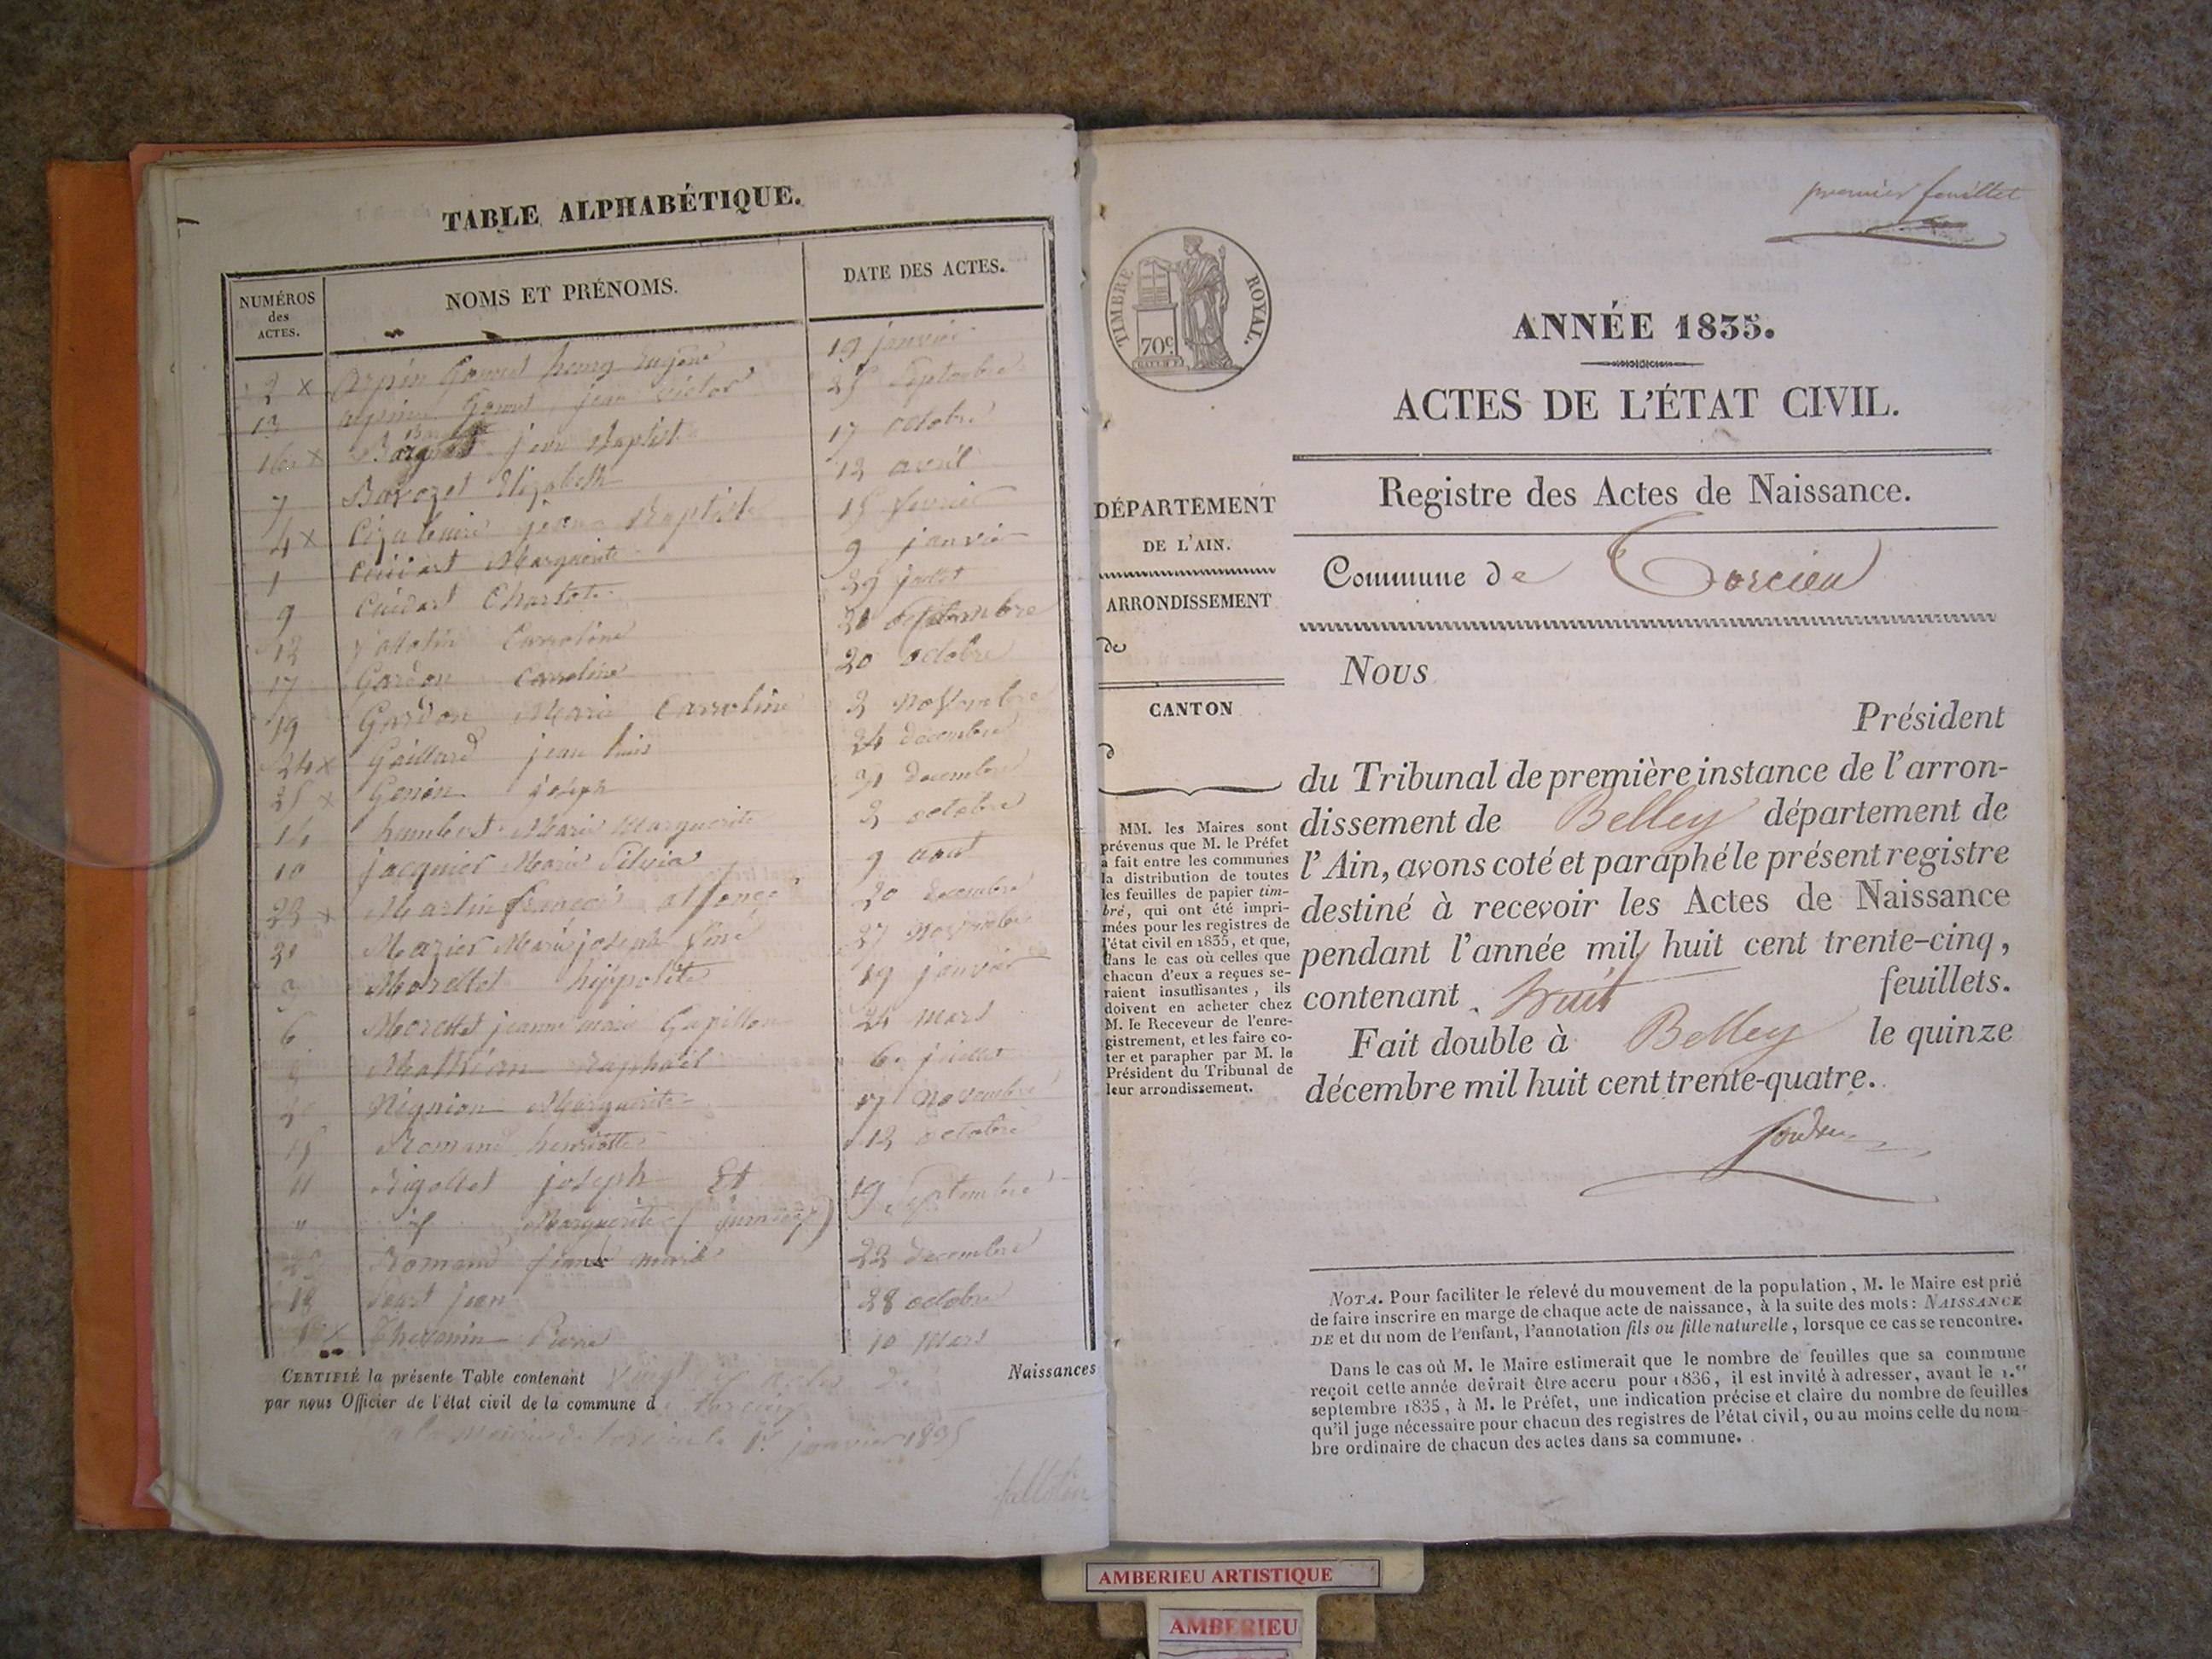 TABLE ALPHABÉTIQUE.
NUMÉROS des ACTES.
NOMS ET PRÉNOMS.
DATE DES ACTES.
2 x Arpin Gonnet henry Eugène 19 janvier
13 arpin Gonnet jean victor 25 Septembre
16 x jean Baptiste 17 octobre
7 Bavozet Elizabeth 12 avril
4 x jean Baptiste 15 fevrier
1 Marguerite 9 janvier
9 Charlote 29 juillet
12 Carroline
17 Gardon Carroline 20 octobre
19 Gardon Marie Carroline 2 Novembre
24 x Gaillard jean louis 24 decembre
25 x Genin joseph 31 decembre
14 humbert Marie Marguerite 2 octobre
10 jacquier Marie Silvie 9 aout
22 x Martin françois alfonce 20 decembre
21 Mazier Marie joseph 27 Novembre
3 Morettet hippolite 19 janvier
6 Morettet jeanne marie 24 mars
8 raphaël 6 juillet
20 Marguerite 17 Novembre
15 Romand henriette 12 octobre
11 Rigollet joseph Et 19 Septembre
" id Marguerite (jumeaux)
23 Romand marie 22 decembre
18 jean 28 octobre
x Thevenin Pierre 10 Mars
CERTIFIÉ la présente Table contenant Vingt actes de Naissances
par nous Officier de l'état civil de la commune de Torcieu
a la Mairie de Torcieu le 1er janvier 183
premier feuillet
TIMBRE ROYAL.
70c
ANNÉE 1835.
ACTES DE L'ÉTAT CIVIL.
Registre des Actes de Naissance.
Commune de Torcieu
DÉPARTEMENT
DE L'AIN.
ARRONDISSEMENT
de
CANTON
d
MM. les Maires sont
prévenus que M. le Préfet
a fait entre les communes
la distribution de toutes
les feuilles de papier tim-
bré, qui ont été impri-
mées pour les registres de
l'état civil en 1835, et que,
dans le cas où celles que
chacun d'eux a reçues se-
raient insuffisantes, ils
doivent en acheter chez
M. le Receveur de l'enre-
gistrement, et les faire co-
ter et parapher par M. le
Président du Tribunal de
leur arrondissement.
Nous
Président
du Tribunal de première instance de l'arron-
dissement de Belley département de
l'Ain, avons coté et paraphé le présent registre
destiné à recevoir les Actes de Naissance
pendant l'année mil huit cent trente-cinq,
contenant huit feuillets.
Fait double à Belley le quinze
décembre mil huit cent trente-quatre.
NOTA. Pour faciliter le relevé du mouvement de la population, M. le Maire est prié
de faire inscrire en marge de chaque acte de naissance, à la suite des mots: NAISSANCE
DE et du nom de l'enfant, l'annotation fils ou fille naturelle, lorsque ce cas se rencontre.
Dans le cas où M. le Maire estimerait que le nombre de feuilles que sa commune
reçoit cette année devrait être accru pour 1836, il est invité à adresser, avant le 1.er
septembre 1835, à M. le Préfet, une indication précise et claire du nombre de feuilles
qu'il juge nécessaire pour chacun des registres de l'état civil, ou au moins celle du nom-
bre ordinaire de chacun des actes dans sa commune.
AMBERIEU ARTISTIQUE
AMBERIEU